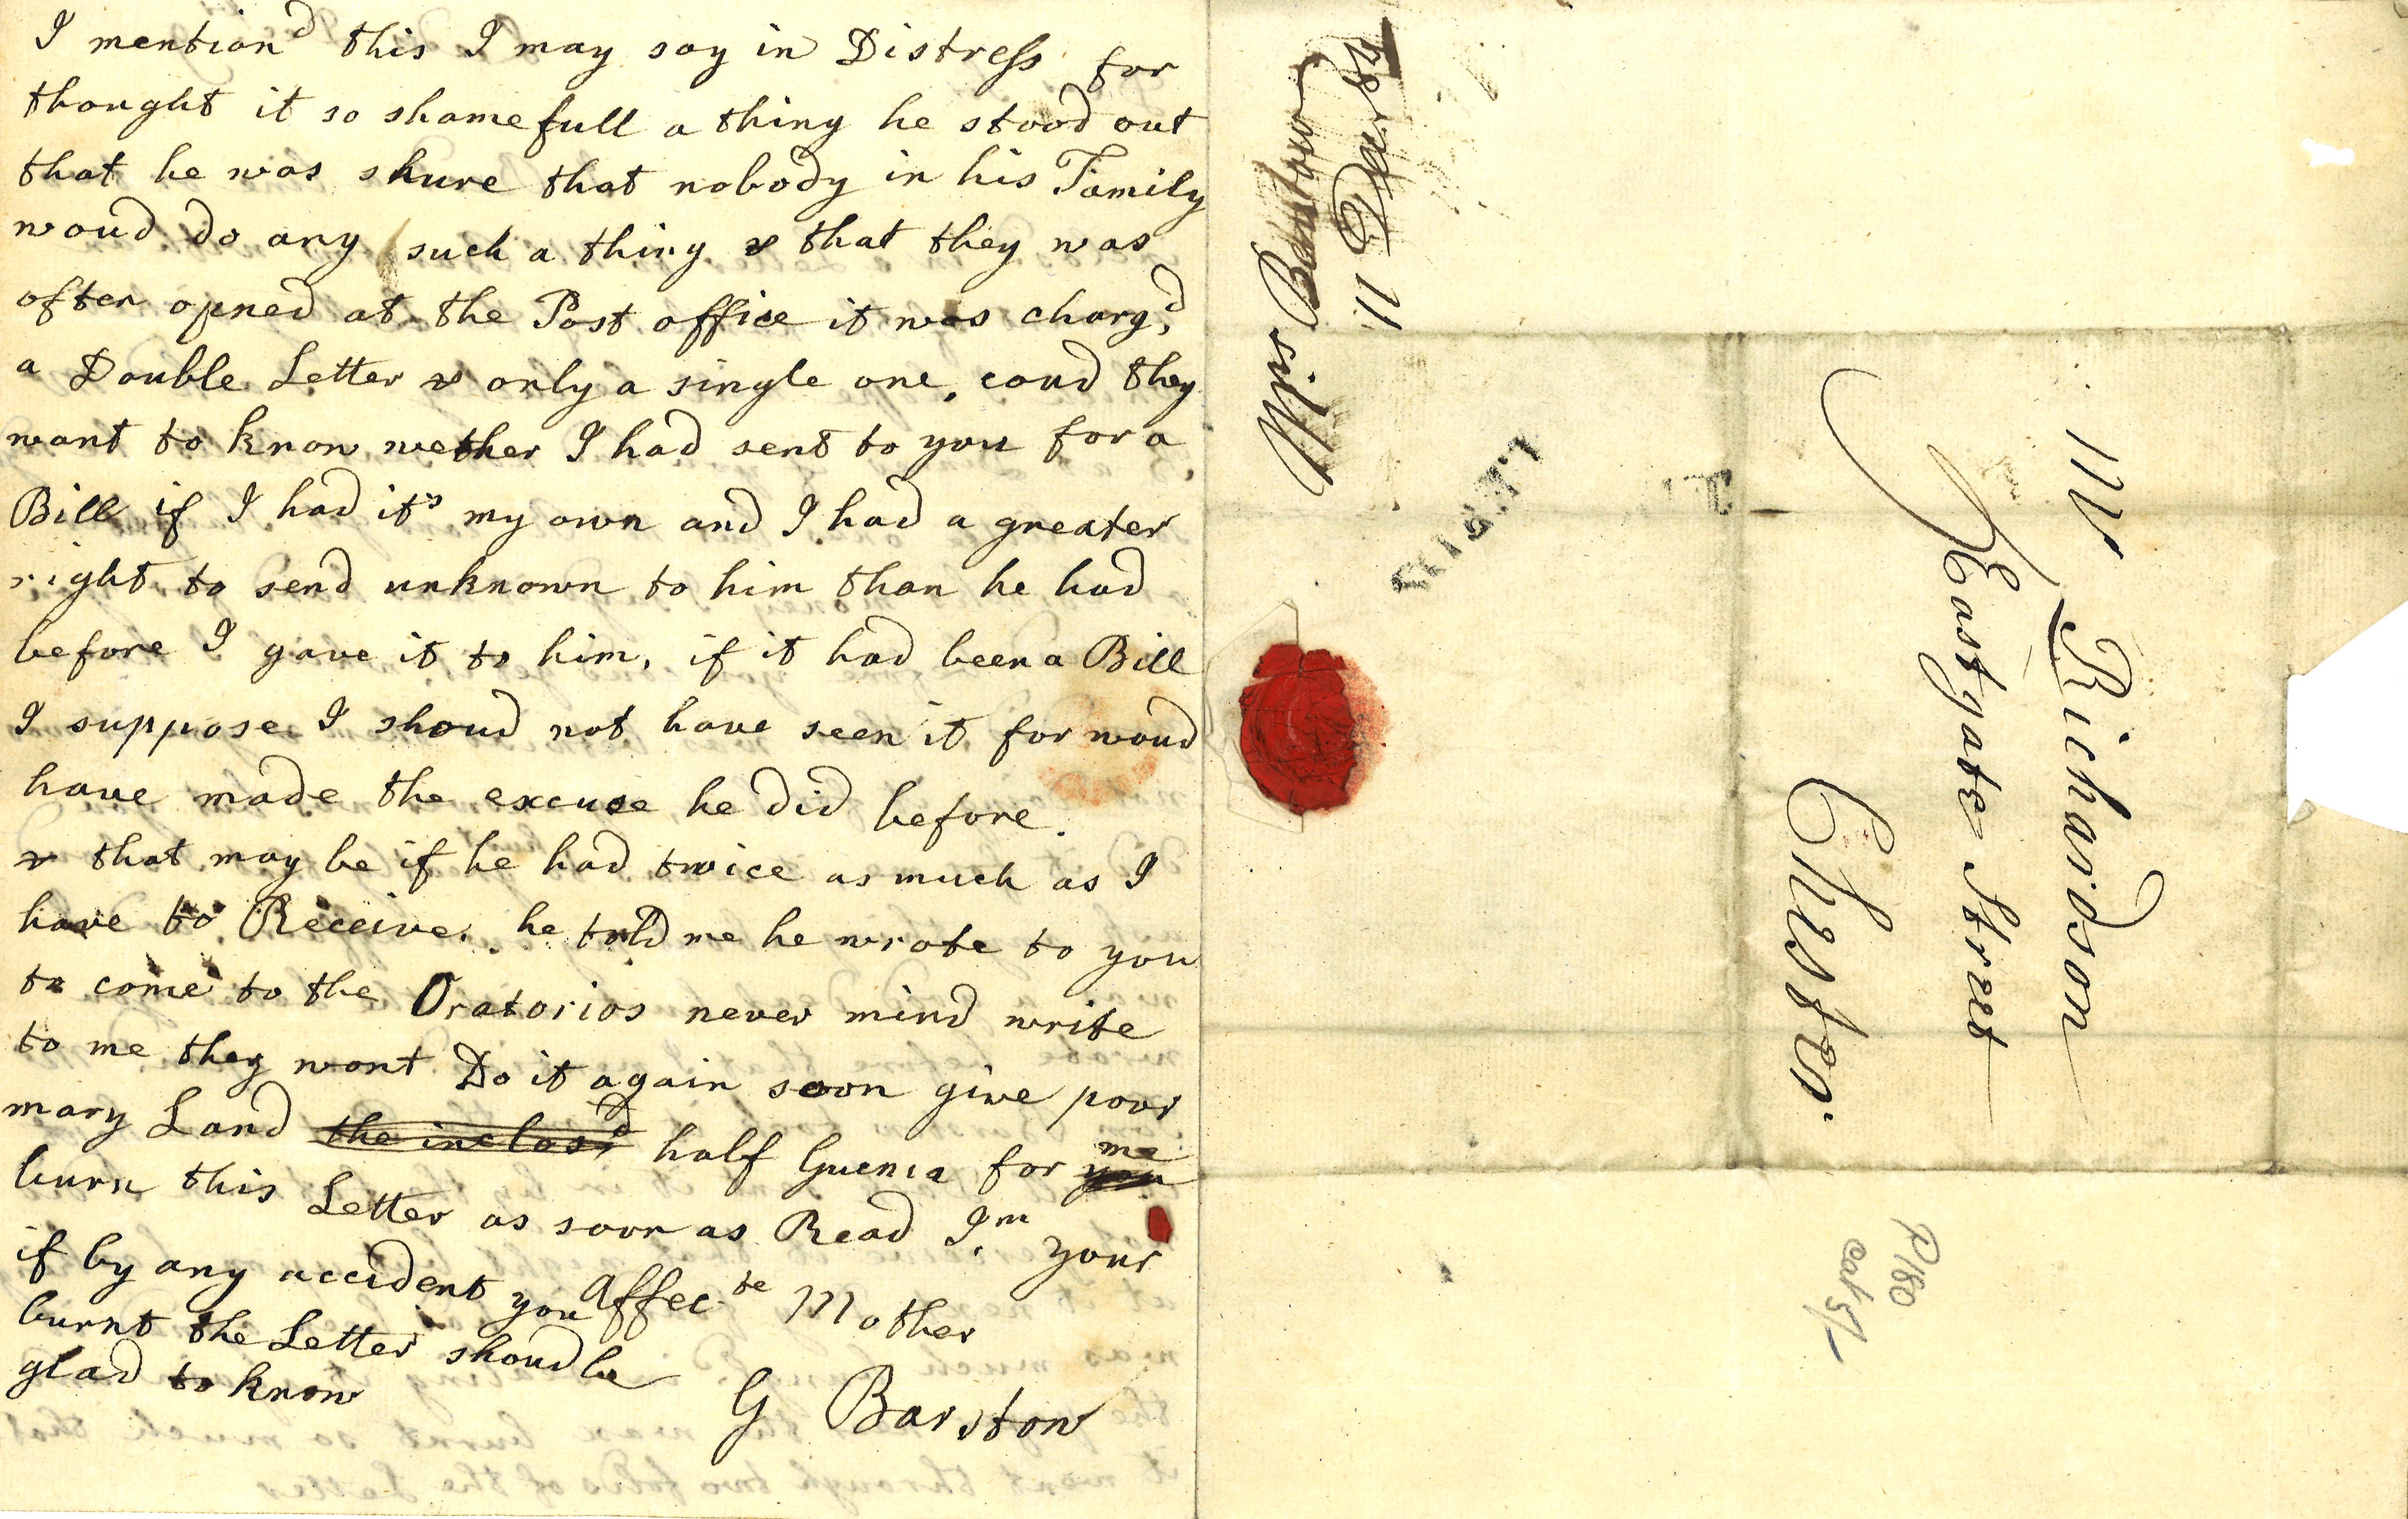 I mention'd this I may say in Distress for
thought it so shamefull a thing he stood out
that he was shure that nobody in his Family
woud do any such a thing & that they was
often opned at the Post office it was charg'd
a Double Letter & only a single one, coud they
want to know wether I had sent to you for a
Bill if I had it's my own and I had a greater
right to send unknown to him than he had
before I gave it to him, if it had been a Bill
I suppose I shoud not have seen it for woud
have made the excuse he did before.
& that may be if he had twice as much as I
have to Receive. he told me he wrote to you
to come to the Oratorios never mind write
to me they wont Do it again soon give poor
mary Land the inclos'd half Guenia for you me
burn this Letter as soon as Read I'm your
Affec.te Mother
G Barstow
if by any accident you
burnt the Letter shoud be
glad to know
Mrs Barstow
11 Decr
Mr Richardson
Eastgate=Street
Chester
P180